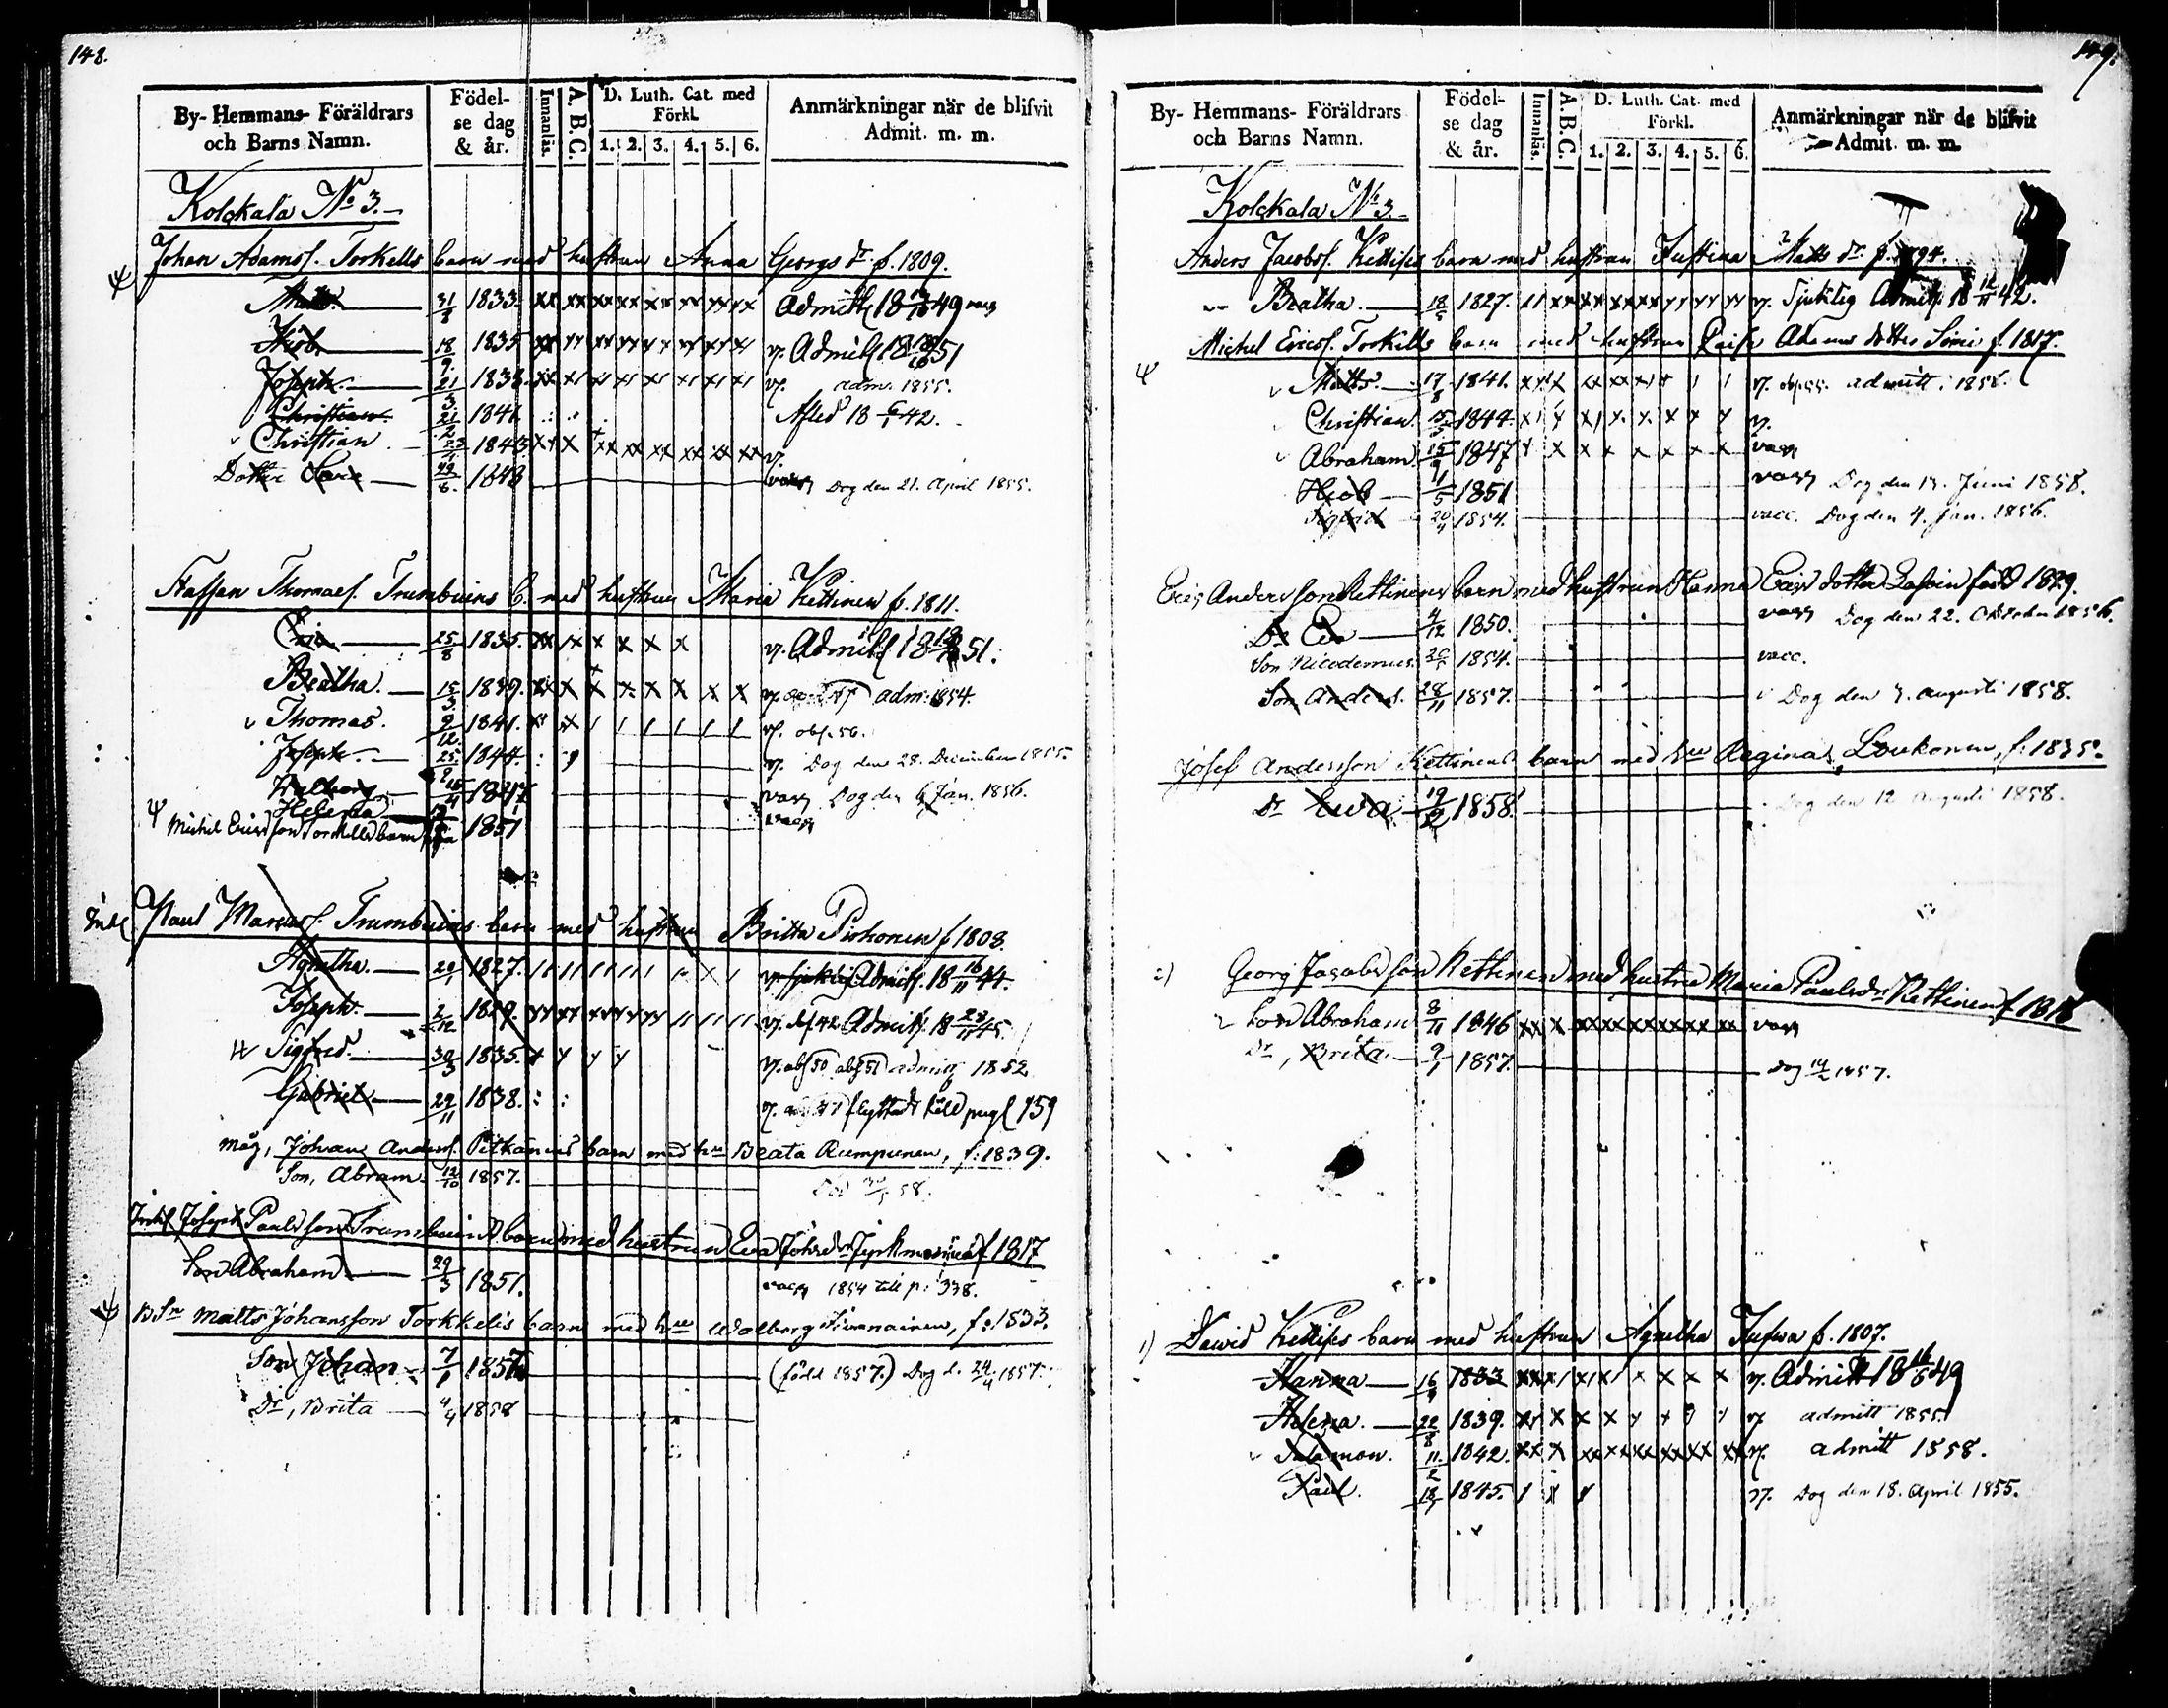 148.
By- Hemmans- Föräldrars och Barns Namn.
Födel- se dag & år.
Innanläs.
A. B. C.
D. Luth. Cat. med Förkl.
1. 2. 3. 4. 5. 6.
Anmärkningar når de blifvit Admit. m. m.
Kolckala No 3.
Johan Adamss. Torkells barn med hustrun Anna Georgs dr. f. 1809.
Matts. 31/8 1833. Admitt 18 49 vacc
Hiob. 18/9 1835 v. Admitt 18 51
Joseph. 21/3 1838. v. adm. 1855.
Christian 21/2 1841 Afled 18 42.
Christian 1843. v.
Dotter Sara 1848 vacc Dog den 21. April 1855.
Staffan Thomass. Trumbuins b. med hustrun Maria Kettinen f. 1811.
25/8 1835. v. Admitt 18 51.
Beatha. 15/3 1839. v. adm: 1854.
Thomas. 9/12 1841. v. obs. 56.
Joseph. 25/9 1844. v. Dog den 28. December 1855.
Walborg 1847 vacc Dog den 6 Jan. 1856.
Helena 1851 vacc
Michel Ericsson Torkells barn
Paul Marcuss. Trumbuins barn med hustrun Britta Pirhonen f 1808.
Agnetha. 20/1 1827. Admitt. 18 16/11 44.
Joseph. 2/12 1829. v. obs 42 Admitt. 18 45.
Sigfred. 30/3 1835. v. obs 50 obs 51 admitt 1852
Gabriel. 29/11 1838. v. flyttade till pag 159
Måg, Johan Anderss. Pitkänens barn med hu Beata Rumpunen, f: 1839.
Son, Abram. 12/10 1857. 58.
Joseph Paulsson Trumbuins barn med hustrun Eva Johsdr f 1817
Son Abraham 29/3 1851. vacc 1854 till p: 338.
B.Sn Matts Johansson Torkkelis barn med hru Walborg f: 1833.
Son Johan 7/1 1857 (född 1857.) Dog d. 24/4 1857.
Dr, Brita 4/4 1858
149.
By- Hemmans- Föräldrars och Barns Namn.
Födel- se dag & år.
Innanläs.
A. B. C.
D. Luth. Cat. med Förkl.
1. 2. 3. 4. 5. 6.
Anmärkningar når de blifvit Admit. m. m.
Kolckala No 3.
Anders Jacobss. Kettises barn med hustrun Justina Matts dr. f. 1794.
Beatha. 18 1827. v. Sjuklig Admitt. 18 42.
Michel Ericss. Torkills barn med hustrun Adams dotter f. 1817.
Matts. 17/8 1841. v. obs. 55. admitt: 1858.
Christian. 15/5 1844. v.
Abraham. 15/9 1847 vacc
Hiob 11/5 1851 vacc Dog den 13. Juni 1858.
Sigfrid 20/4 1854. vacc. Dog den 4. Jan. 1856.
Eric Andersson Kettinens barn med hustrun Hanna Ericsdotter född 1829.
Dr Eva 4/12 1850. vacc Dog den 22. Oktober 1856.
Son Nicodemus 1854. vacc.
Son Anders. 28/11 1857. v Dog den 3. Augusti 1858.
Josef Andersson Kettinens barn med hru Regina Loukonen, f: 1835.
Dr Ewa 1858. Dog den 12 Augusti 1858.
2) Georg Jacobsson Kettinen med hustru Maria Paulsdr Kettinen f 1818
Son Abraham 8/11 1846 vacc
Dr, Brita. 9/1 1857. Dog 14/2 1857.
1) David Kettises barn med hustrun Agnetha f. 1807.
Hanna 16/9 1833 v. Admitt 18 16/6 49
Helena. 22/8 1839. v admitt 1855
Salamon. 11/2 1842. v. admitt 1858.
Paul. 18 1845. v. Dog den 18. April 1855.